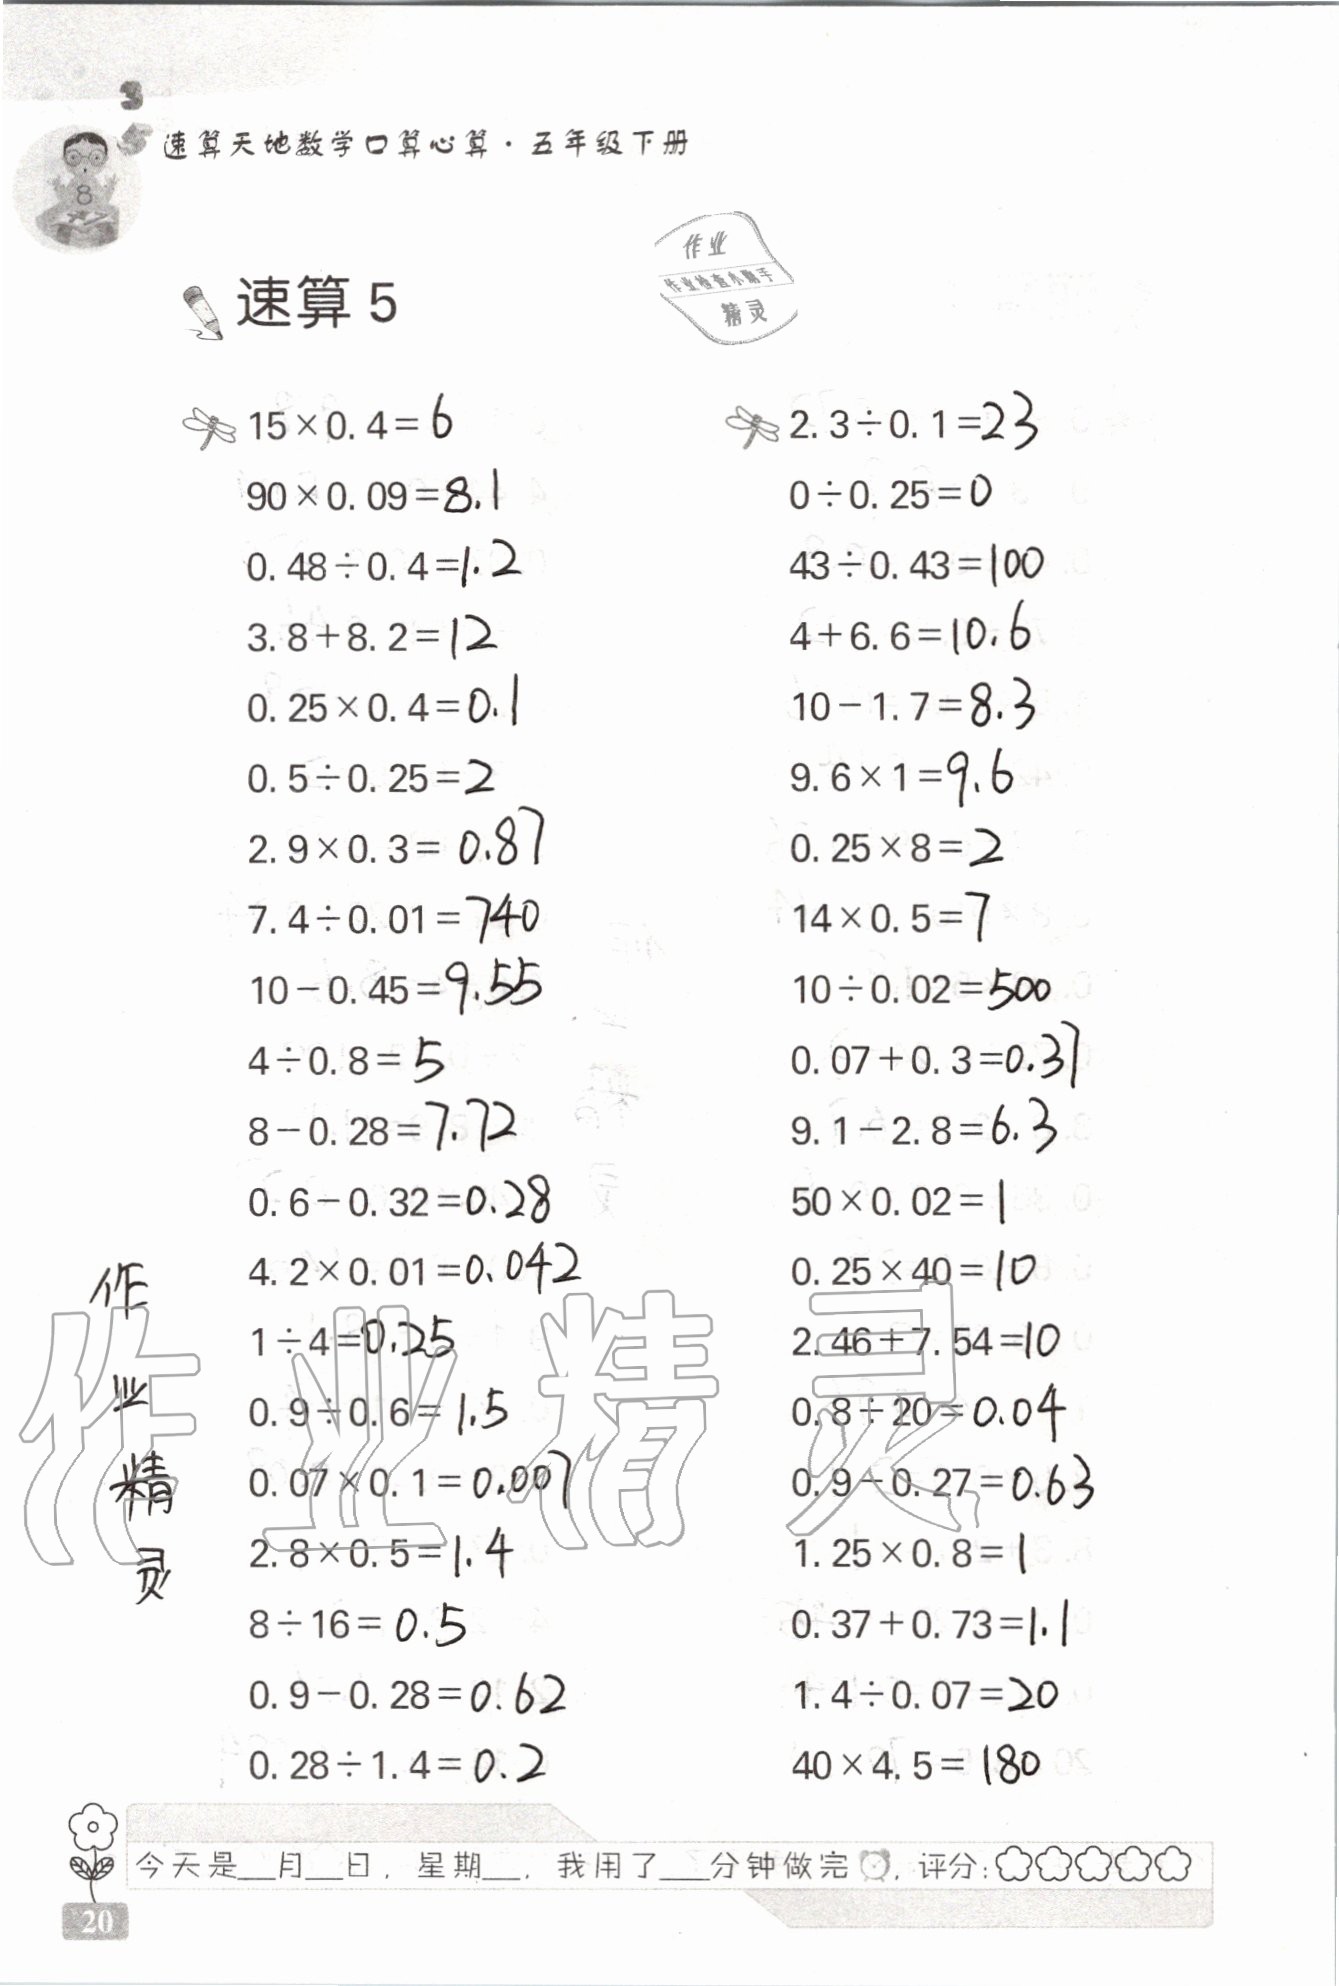 速算天地数学口算心算·五年级下册
作业
作业检查小助手
精灵
速算 5
15×0.4=6
90×0.09=8.1
0.48÷0.4=1.2
3.8+8.2=12
0.25×0.4=0.1
0.5÷0.25=2
2.9×0.3=0.87
7.4÷0.01=740
10-0.45=9.55
4÷0.8=5
8-0.28=7.72
0.6-0.32=0.28
4.2×0.01=0.042
1÷4=0.25
0.9÷0.6=1.5
0.07×0.1=0.007
2.8×0.5=1.4
8÷16=0.5
0.9-0.28=0.62
0.28÷1.4=0.2
2.3÷0.1=23
0÷0.25=0
43÷0.43=100
4+6.6=10.6
10-1.7=8.3
9.6×1=9.6
0.25×8=2
14×0.5=7
10÷0.02=500
0.07+0.3=0.37
9.1-2.8=6.3
50×0.02=1
0.25×40=10
2.46+7.54=10
0.8÷20=0.04
0.9-0.27=0.63
1.25×0.8=1
0.37+0.73=1.1
1.4÷0.07=20
40×4.5=180
作业精灵
作
业
精
灵
今天是__月__日，星期__，我用了___分钟做完，评分：
20